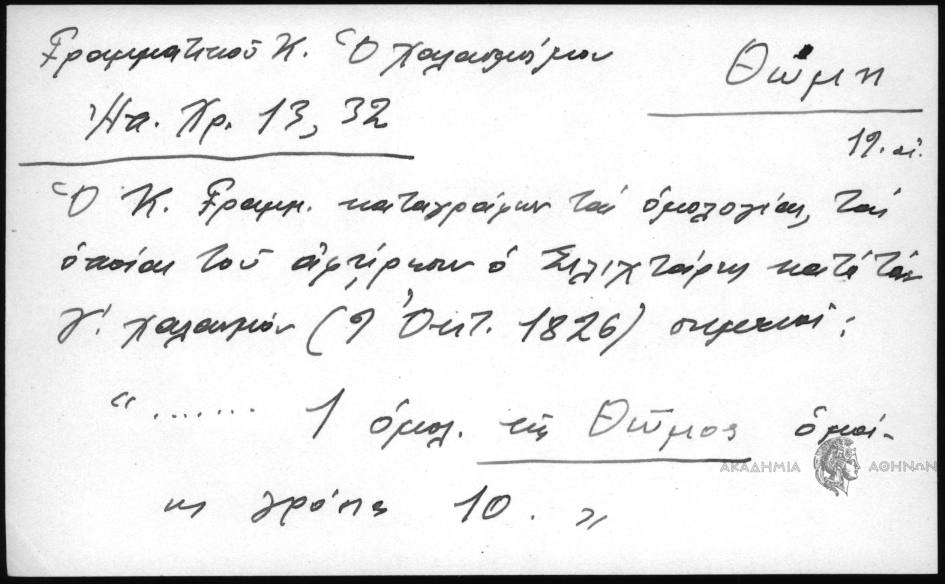 Γραμματικοῦ Κ. Ὁ χαλασμός μου
Θώμη
Ἠπ. Χρ. 13, 32
19. αἰ.
Ὁ Κ. Γραμμ. καταγράφων τάς ὁμολογίας, τάς
ὁποίας τοῦ ἀφῄρεσεν ὁ Σιλιχτάρης κατά τόν
γ΄. χαλασμόν (9 Ὀκτ. 1826) σημειοῖ:
“....... 1 ὁμολ. τῆς Θώμος ὁμοί-
ως γρόσια 10. „
ΑΚΑΔΗΜΙΑ ΑΘΗΝΩΝ